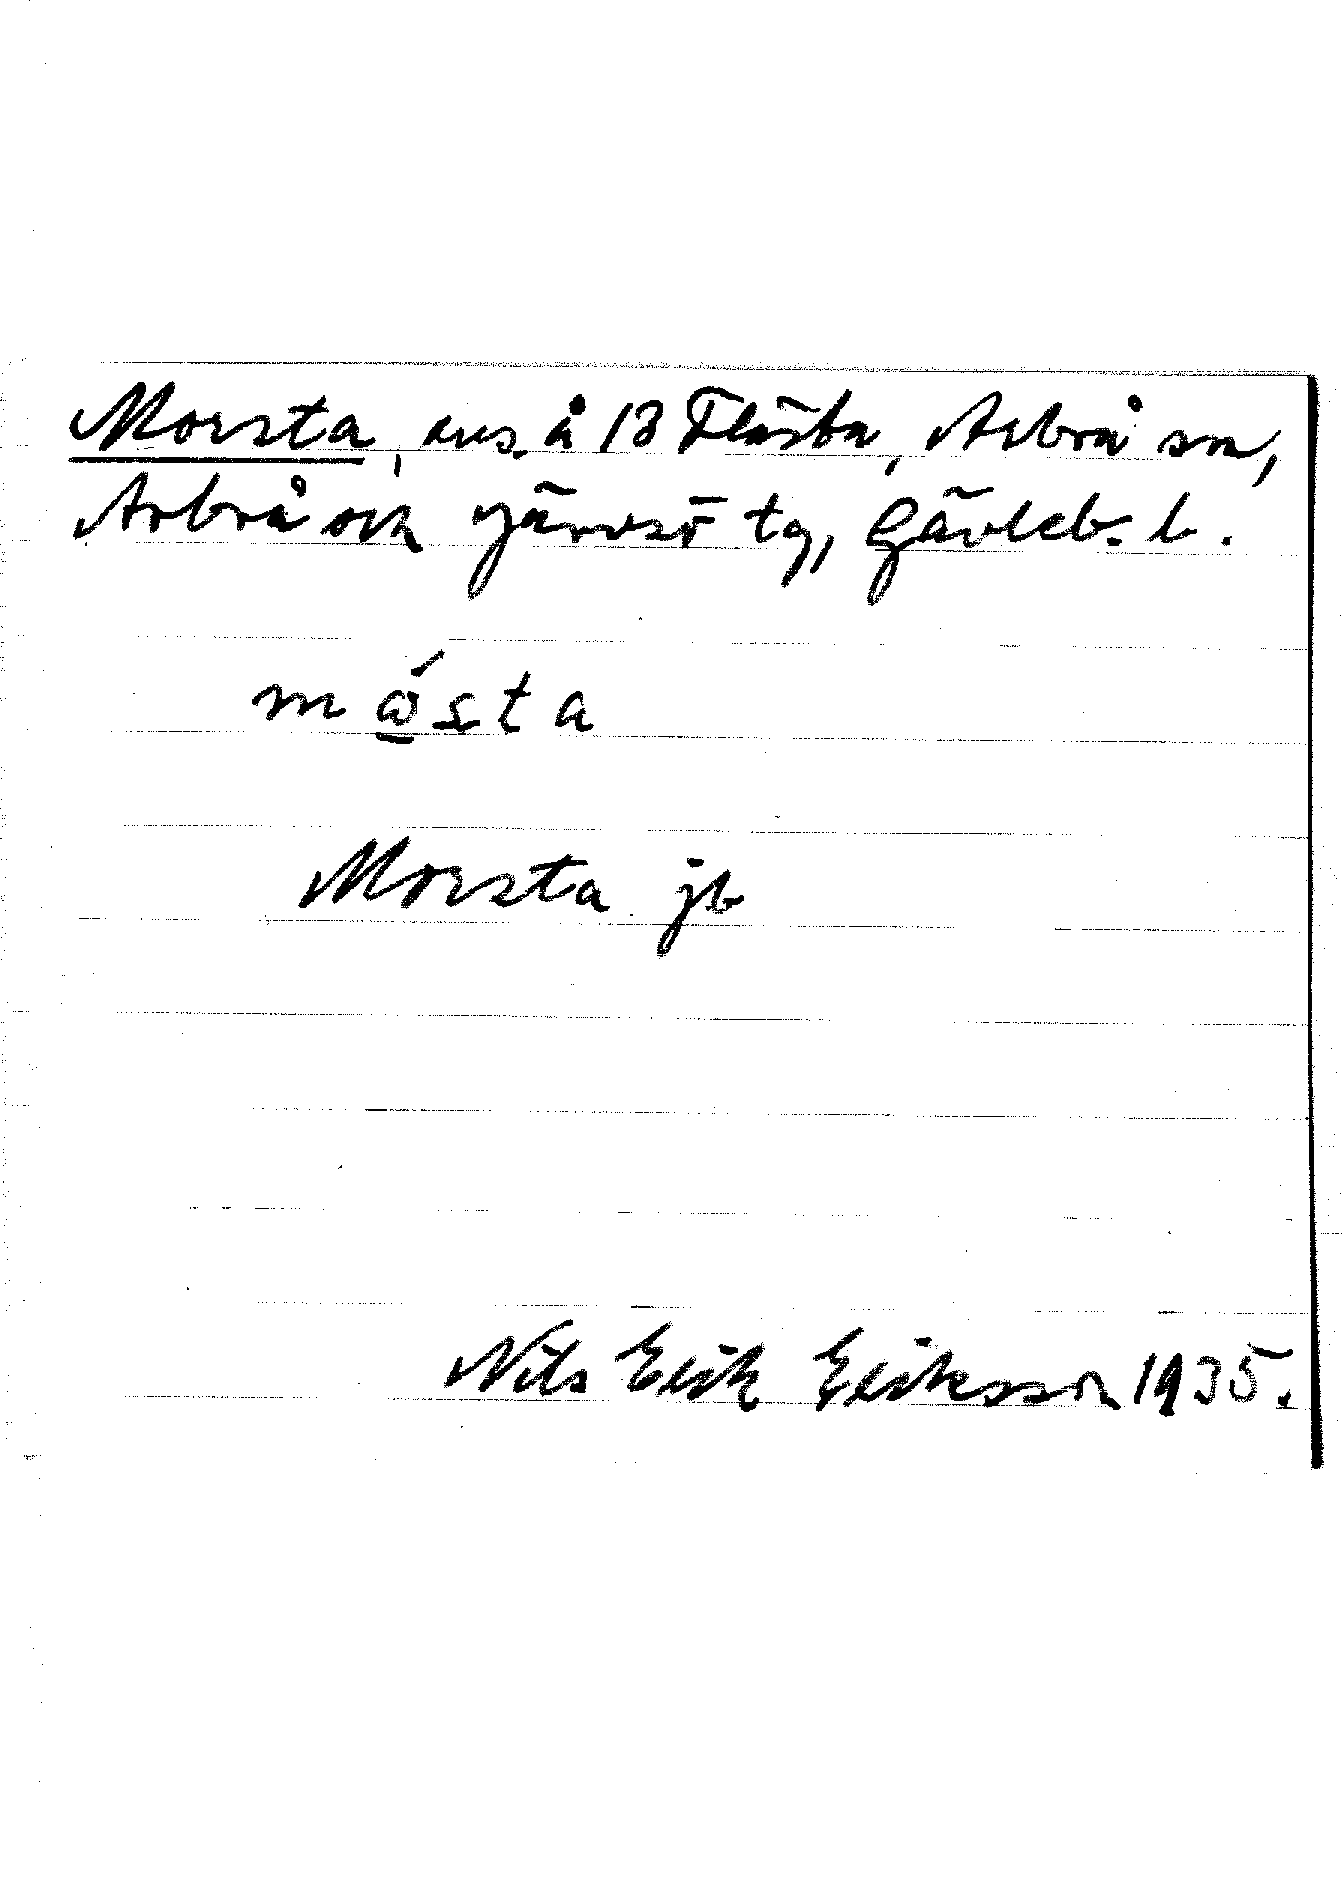 Morsta, avs. å 13 Flästa, Arbrå sn,
Arbrå och Järvsö tg, Gävleb. l.
Morsta jb
Nils Erik Eriksson 1935.